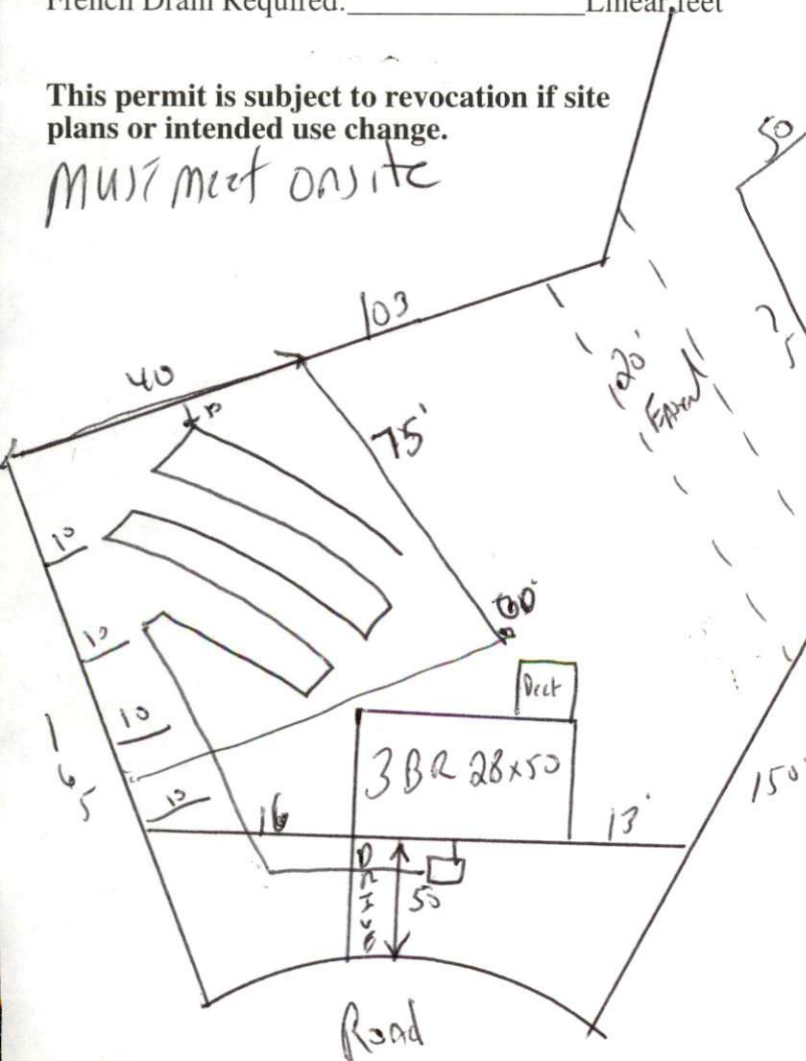 French Drain Required:________________Linear feet
This permit is subject to revocation if site
plans or intended use change.
Must meet onsite
50
103
40
75'
20'
10
10
10
10
165
Deck
3 BR 28x50
16
13'
150'
DRIVE
50
Road